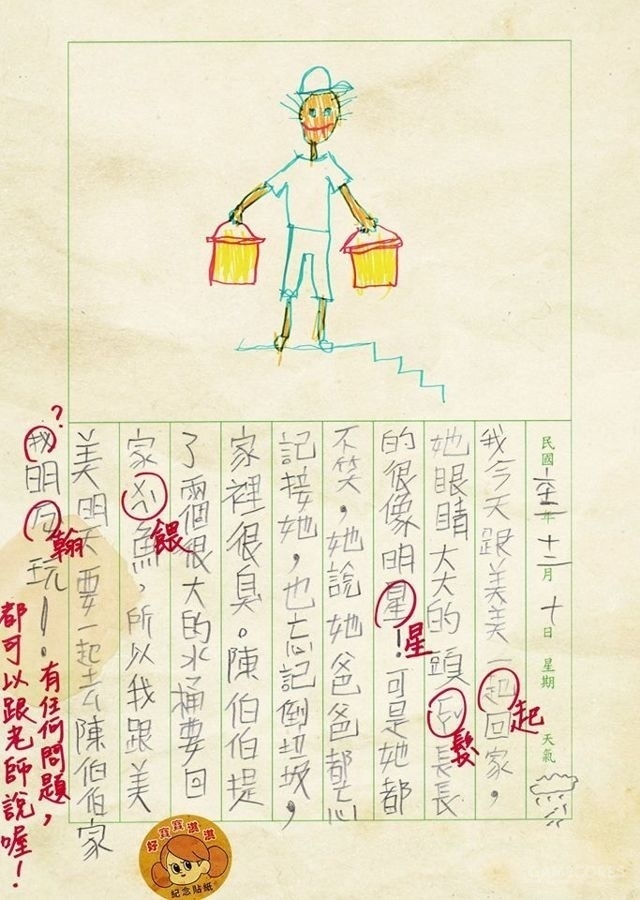 民國 年 十二月 十日 星期 天氣
我今天跟美美一起回家，
起
她眼睛大大的頭 長長
髮
的很像明星！可是她都
星
不笑，她說她爸爸都忘
記接她，也忘記倒垃圾，
家裡很臭。陳伯伯提
了兩個很大的水桶要回
家 魚，所以我跟美
餵
美明天要一起去陳伯伯家
明 玩！
?
翰
有任何問題，
都可以跟老師說喔！
好寶寶淇淇
紀念貼紙